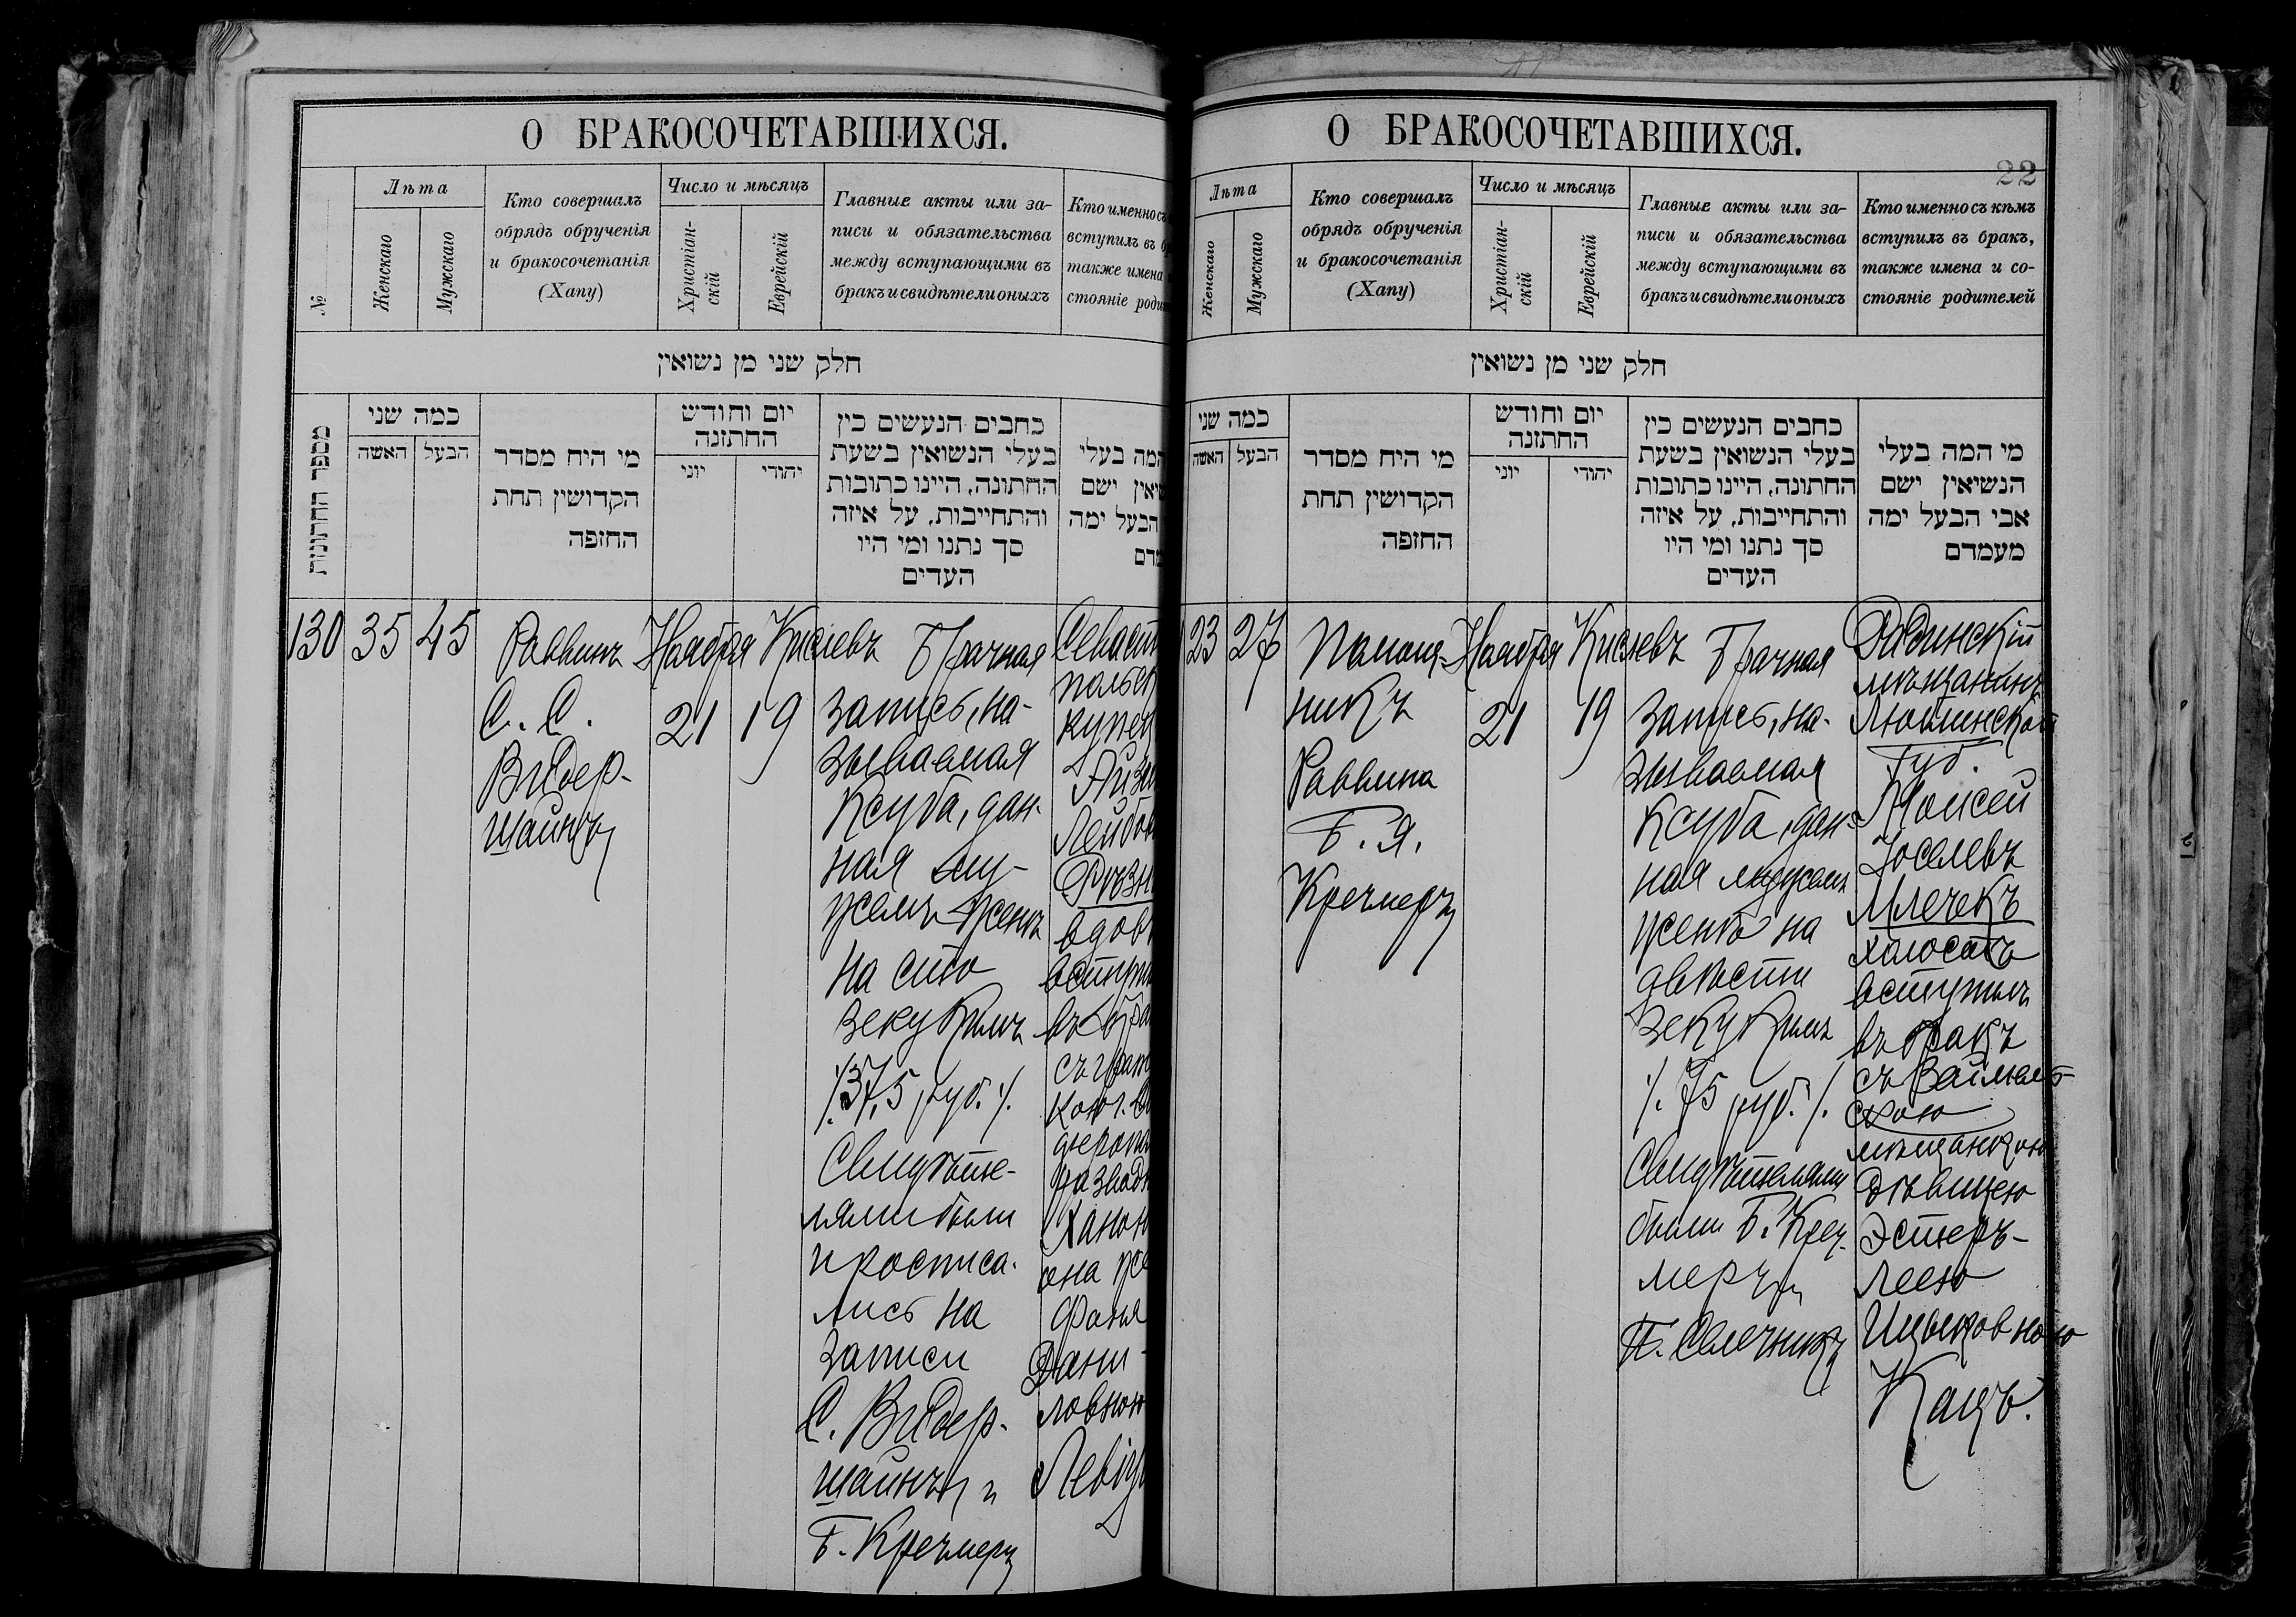 О БРАКОСОЧЕТАВШИХСЯ.
№
Лѣта
Женскаго
Мужскаго
Кто совершалъ
обрядъ обрученія
и бракосочетанія
(Хапу)
Число и мѣсяцъ
Христіан-
скій
Еврейскій
Главные акты или за-
писи и обязательства
между вступающими въ
бракъ и свидѣтели оныхъ
Кто именно съ
вступилъ въ
также имена
стояніе
חלק שני מן נשואין
מספר החתונות
כמה שני
האשה
הבעל
מי היח מסדר
הקדושין תחת
החופה
יום וחודש
החתונה
יוני
יהודי
כחבים הנעשים כין
בעלי הנשואין בשעת
החתונה, היינו כתובות
והתחייבות, על איזה
סך נתנו ומי היו
העדים
המה בעלי
ישם
הבעל ימה
130
35
45
Раввинъ
С. С.
Видер-
шайнъ
Ноября
21
Кислевъ
19
Брачная
запись, на-
зываемая
Ксуба, дан-
ная му-
жемъ женѣ
на сто
зекукимъ
/.37,5 руб./.
Свидѣте-
лями были
и росписа-
лись на
записи
С. Видер-
шайнъ и
Б. Кречмеръ
купец
Лейбов
вдов
въ бра
съ
она же
Фаня
Дани-
ловною
О БРАКОСОЧЕТАВШИХСЯ.
22
Лѣта
Женскаго
Мужскаго
Кто совершалъ
обрядъ обрученія
и бракосочетанія
(Хапу)
Число и мѣсяцъ
Христіан-
скій
Еврейскій
Главные акты или за-
писи и обязательства
между вступающими въ
бракъ и свидѣтели оныхъ
Кто именно съ кѣмъ
вступилъ въ бракъ,
также имена и со-
стояніе родителей
חלק שני מן נשואין
כמה שני
האשה
הבעל
מי היח מסדר
הקדושין תחת
החופה
יום וחודש
החתונה
יוני
יהודי
כחבים הנעשים כין
בעלי הנשואין בשעת
החתונה, היינו כתובות
והתחייבות, על איזה
סך נתנו ומי היו
העדים
מי המה בעלי
הנשיאין ישם
אבי הבעל ימה
מעמדם
23
27
Помощ-
никъ
Раввина
Б. Я.
Кречмеръ
Ноября
21
Кислевъ
19
Брачная
запись, на-
зываемая
Ксуба, дан-
ная мужемъ
женѣ на
двѣсти
зекукимъ
/.75 руб./.
Свидѣтелями
были Б. Креч-
меръ и
Радинскій
мѣщанинъ
Люблинской
губ.
Мойсей
Іоселевъ
Млечекъ
холостъ
вступилъ
въ бракъ
скою
мѣщанкою
дѣвицею
Эстеръ-
Леею
Ицьковною
Кацъ.